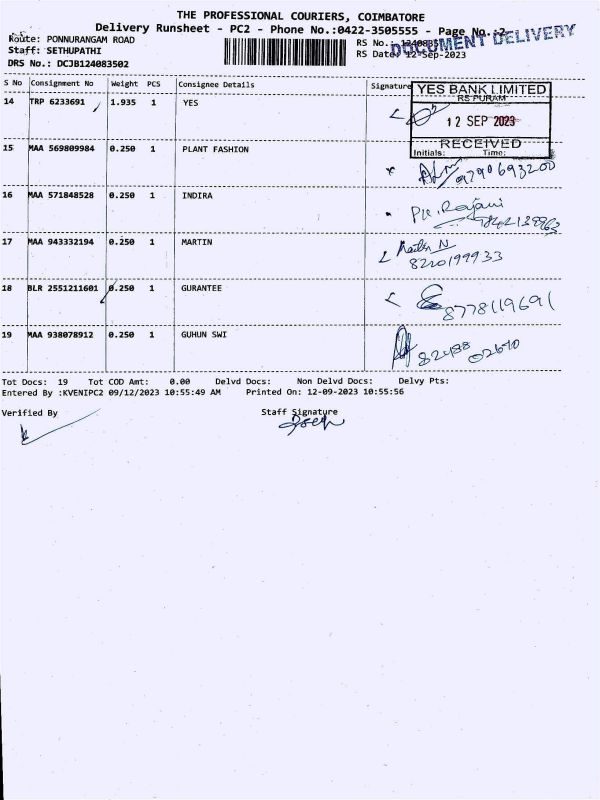 THE PROFESSIONAL COURIERS, COIMBATORE
Delivery Runsheet - PC2 - Phone No.:0422-3505555 - Page No.:2
DOCUMENT DELIVERY
Route: PONNURANGAM ROAD
RS No.:
Staff: SETHUPATHI
RS Date: 12-Sep-2023
DRS No.: DCJB124083502
S No Consignment No Weight PCS Consignee Details Signature
YES BANK LIMITED
RS PURAM
14 TRP 6233691 1.935 1 YES
12 SEP 2023
RECEIVED
Initials: Time:
15 MAA 569809984 0.250 1 PLANT FASHION
9790693200
16 MAA 571848528 0.250 1 INDIRA
Rajani
17 MAA 943332194 0.250 1 MARTIN
N
8220199933
18 BLR 2551211601 0.250 1 GURANTEE
8778119691
19 MAA 938078912 0.250 1 GUHUN SWI
82488 02640
Tot Docs: 19 Tot COD Amt: 0.00 Delvd Docs: Non Delvd Docs: Delvy Pts:
Entered By :KVENIPC2 09/12/2023 10:55:49 AM Printed On: 12-09-2023 10:55:56
Verified By Staff Signature